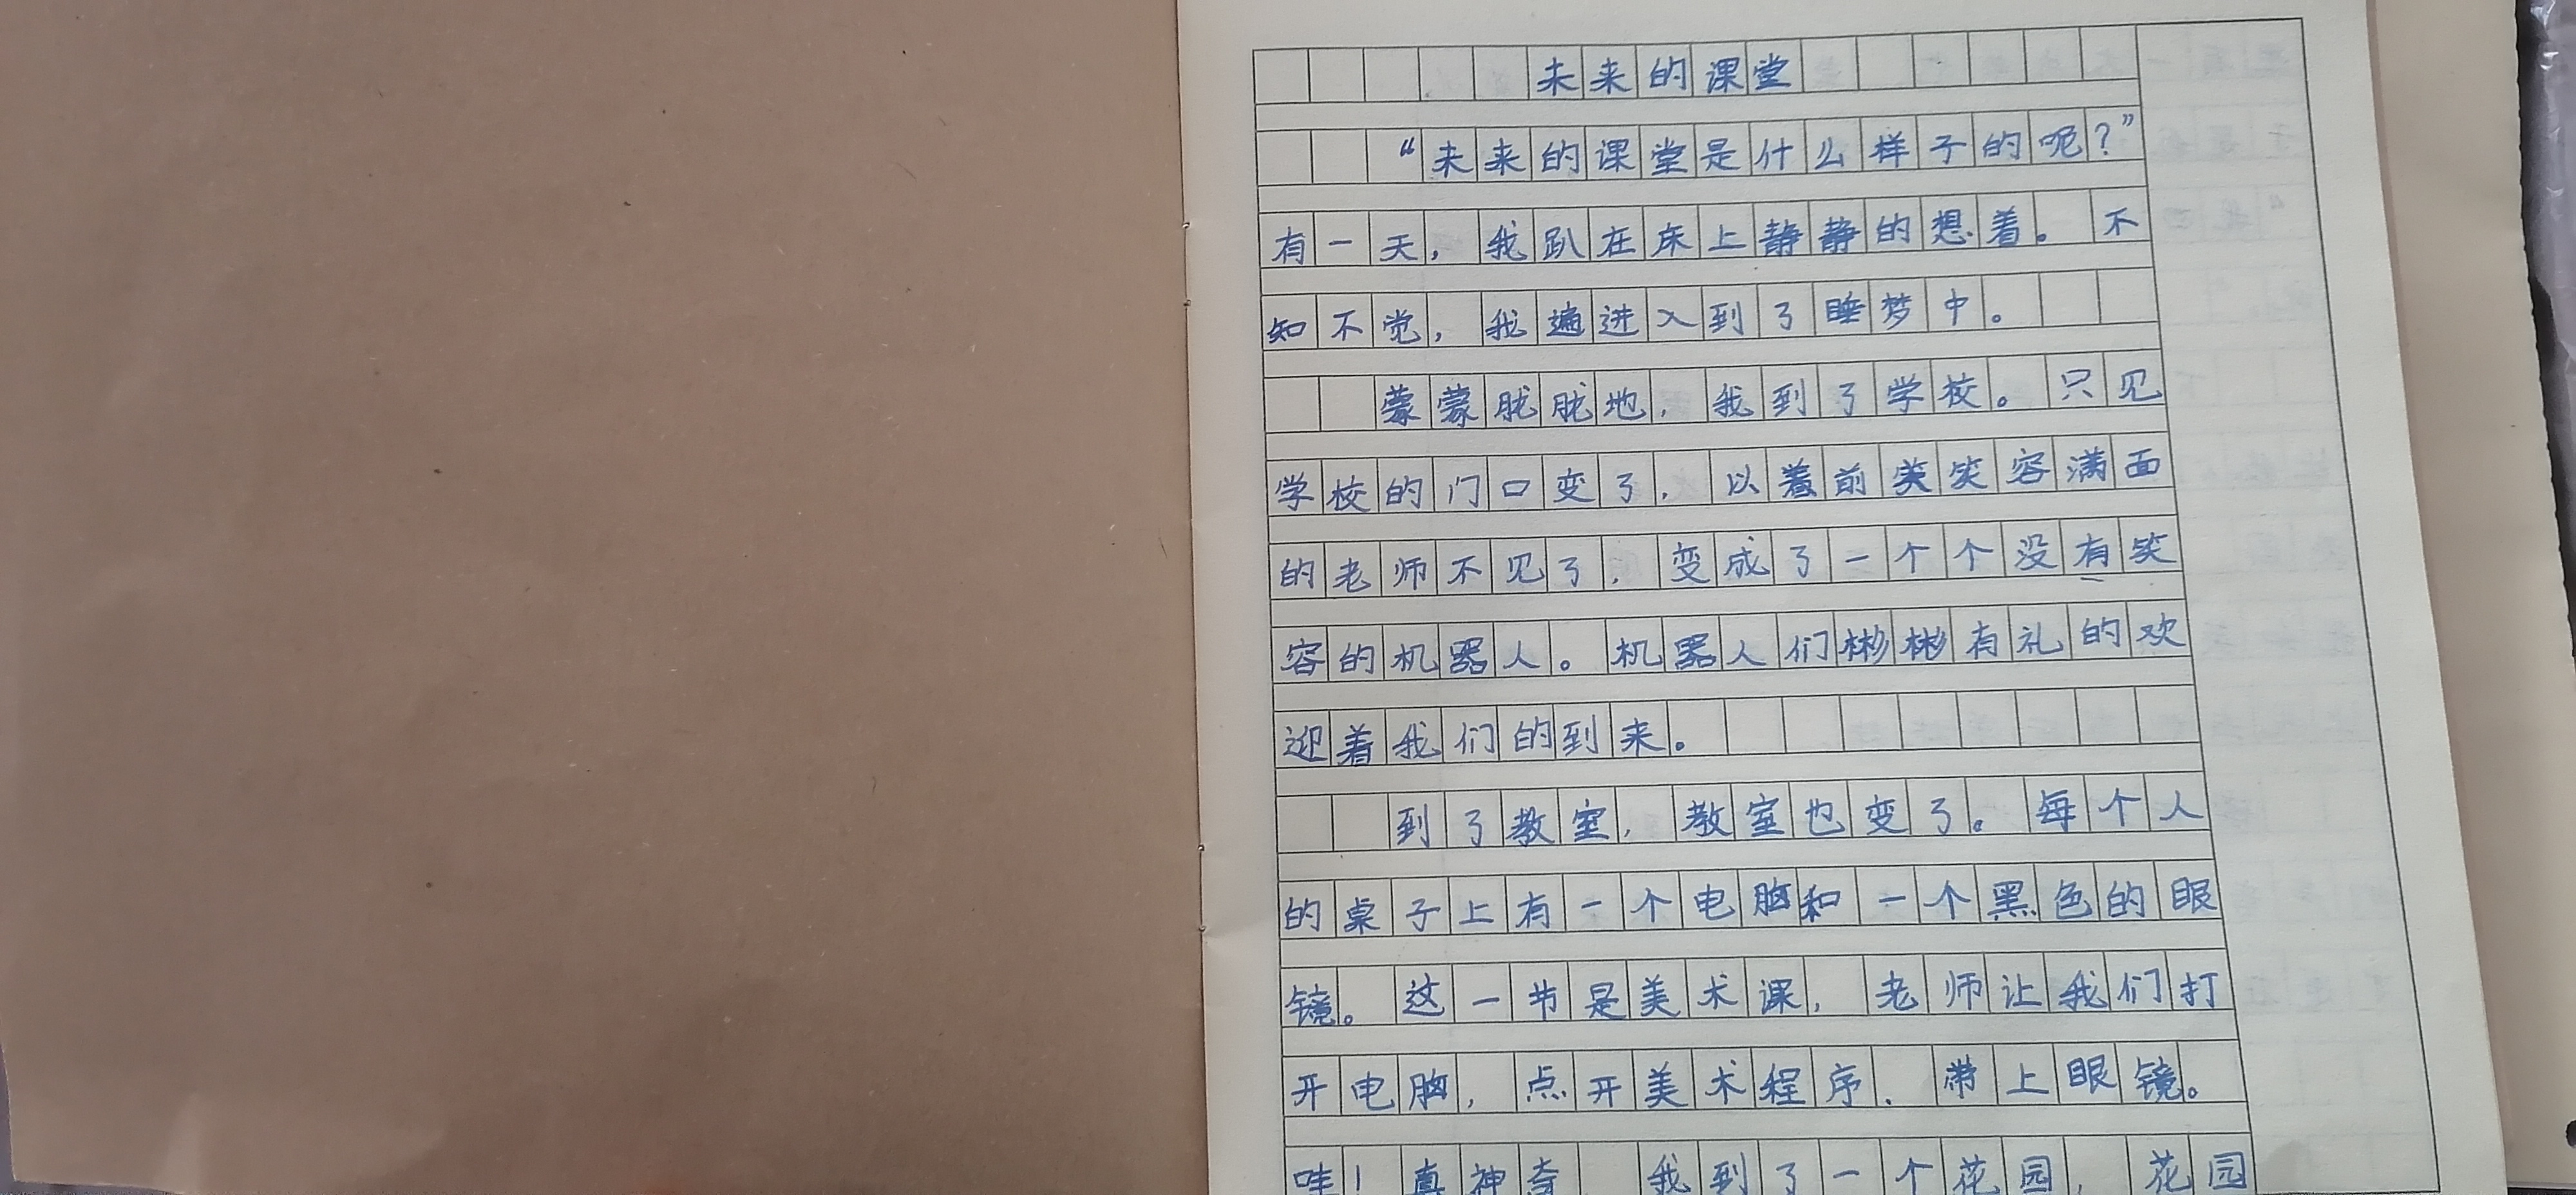 未来的课堂
“未来的课堂是什么样子的呢？”
有一天，我趴在床上静静的想着。不
知不觉，我遍进入到了睡梦中。
蒙蒙胧胧地，我到了学校。只见
学校的门口变了，以着前美笑容满面
的老师不见了，变成了一个个没有笑
容的机器人。机器人们彬彬有礼的欢
迎着我们的到来。
到了教室，教室也变了。每个人
的桌子上有一个电脑和一个黑色的眼
镜。这一节是美术课，老师让我们打
开电脑，点开美术程序，带上眼镜。
哇！真神奇，我到了一个花园，花园